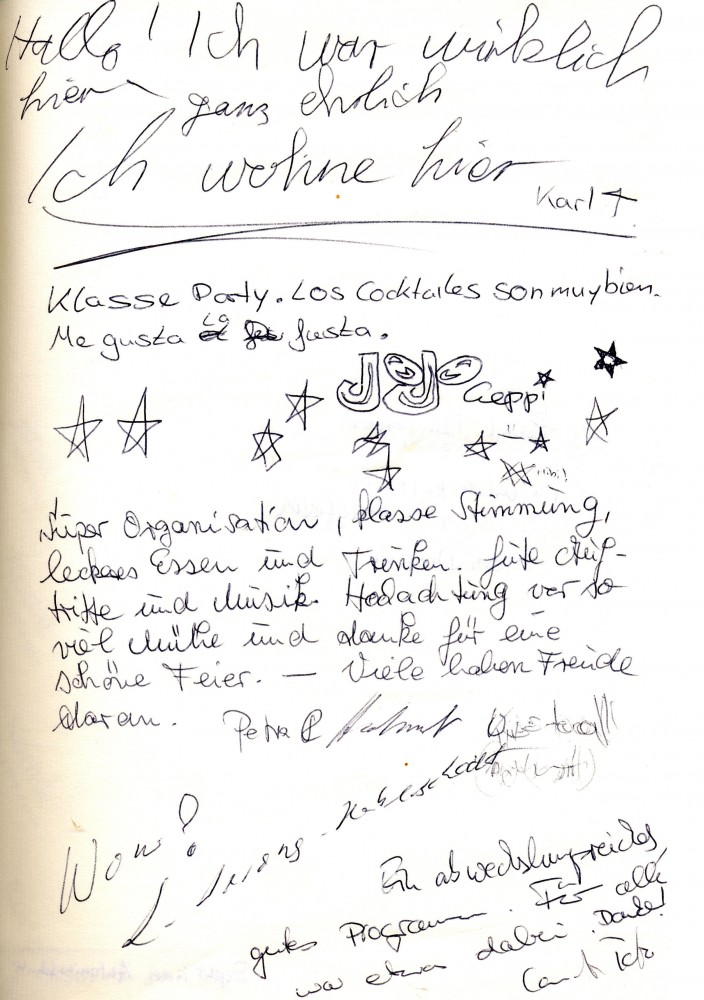 Hallo! Ich war wirklich
hier ganz ehrlich
Ich wohne hier
Karl
Klasse Party. Los Cocktailes son muy bien.
Me gusta la fusta.
JOJO Geppi
Super Organisation, klasse Stimmung,
leckeres Essen und Trinken. Gute Auf-
tritte und Musik. Hochachtung vor so
viel Mühe und danke für eine
schöne Feier. — Viele haben Freude
daran. Petra R
Wow!
Ein abwechslungsreiches,
gutes Programm. Für alle
war etwas dabei. Danke!